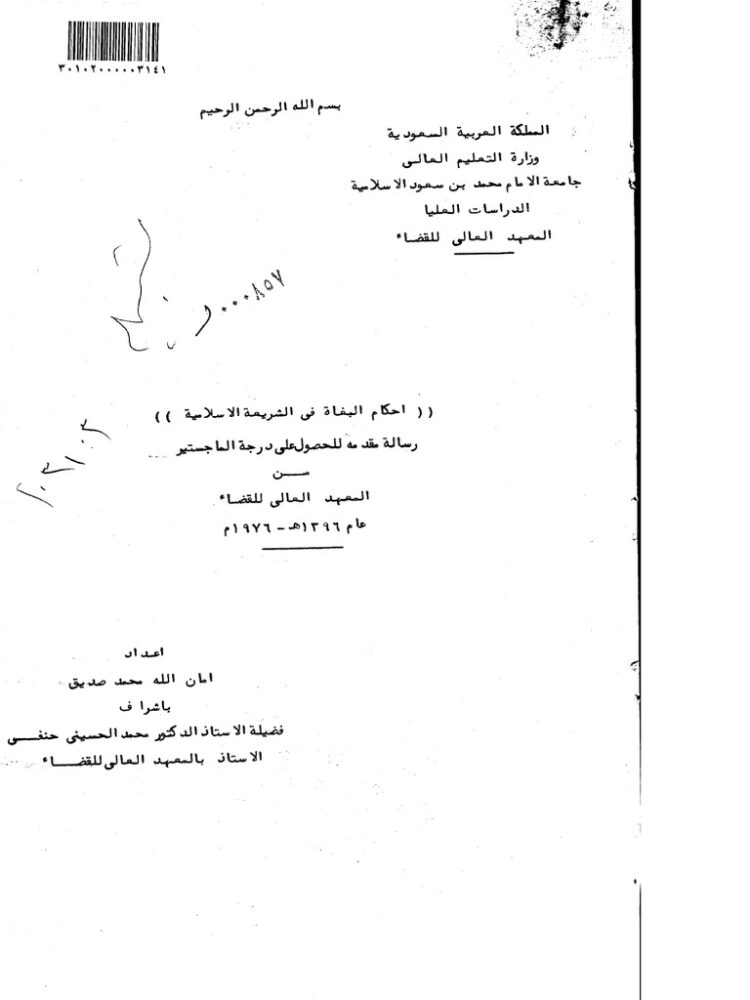 ٣٠١٠٢٠٠٠٠٠٣١٤١
بسم الله الرحمن الرحيم
المملكة العربية السعودية
وزارة التعليم العالى
جامعة الامام محمد بن سعود الاسلامية
الدراسات العليا
المعهد العالى للقضاء
٠٠٠٨٥٧
(( احكام البغاة فى الشريعة الاسلامية ))
رسالة مقدمه للحصول على درجة الماجستير
مــــن
المعهد العالى للقضاء
عام ١٣٩٦هـ - ١٩٧٦م
اعداد
امان الله محمد صديق
باشراف
فضيلة الاستاذ الدكتور محمد الحسينى حنفــى
الاستاذ بالمعهد العالى للقضـــاء